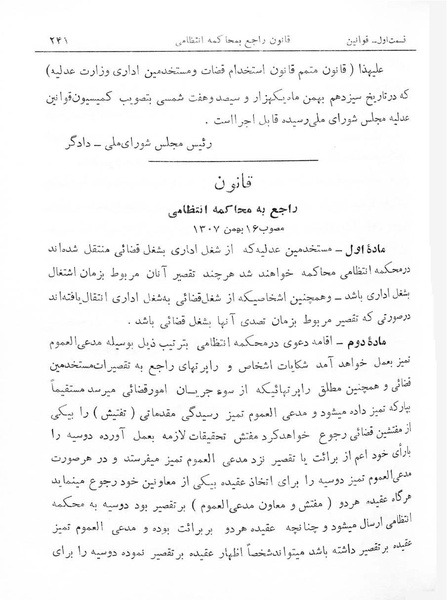 قسمت اول ـ قوانین
قانون راجع بمحاکمه انتظامی
۲۴۱
علیهذا (قانون متمم قانون استخدام قضات ومستخدمین اداری وزارت عدلیه)
که درتاریخ سیزدهم بهمن ماه یکهزار و سیصدوهفت شمسی بتصویب کمیسیون قوانین
عدلیه مجلس شورای ملی رسیده قابل اجرااست .
رئیس مجلس شورای ملی ـ دادگر
قانون
راجع به محاکمه انتظامی
مصوب ۱۶ بهمن ۱۳۰۷
مادۀ اول ـ مستخدمین عدلیه که از شغل اداری بشغل قضائی منتقل شده‌اند
درمحکمه انتظامی محاکمه خواهند شد هرچند تقصیر آنان مربوط بزمان اشتغال
بشغل اداری باشد ـ وهمچنین اشخاصیکه از شغل قضائی به‌شغل اداری انتقال یافته‌اند
درصورتی که تقصیر مربوط بزمان تصدی آنها بشغل قضائی باشد .
مادۀ دوم ـ اقامه دعوی درمحکمه انتظامی بترتیب ذیل بوسیله مدعی‌العموم
تمیز بعمل خواهد آمد شکایات اشخاص و راپرتهای راجع به تقصیرات مستخدمین
قضائی و همچنین مطلق راپرتهائیکه از سوء جریان امورقضائی میرسد مستقیماً
بپارکه تمیز داده میشود و مدعی العموم تمیز رسیدگی مقدماتی (تفتیش) را بیکی
از مفتشین قضائی رجوع خواهدکرد مفتش تحقیقات لازمه بعمل آورده دوسیه را
بارأی خود اعم از برائت یا تقصیر نزد مدعی العموم تمیز میفرستند و در هرصورت
مدعی‌العموم تمیز دوسیه را برای اتخاذ عقیده بیکی از معاونین خود رجوع مینماید
هرگاه عقیده هردو (مفتش و معاون مدعی‌العموم) برتقصیر بود دوسیه به محکمه
انتظامی ارسال میشود و چنانچه عقیده هردو بربرائت بوده و مدعی العموم تمیز
عقیده برتقصیر داشته باشد میتواندشخصاً اظهار عقیده برتقصیر نموده دوسیه را برای